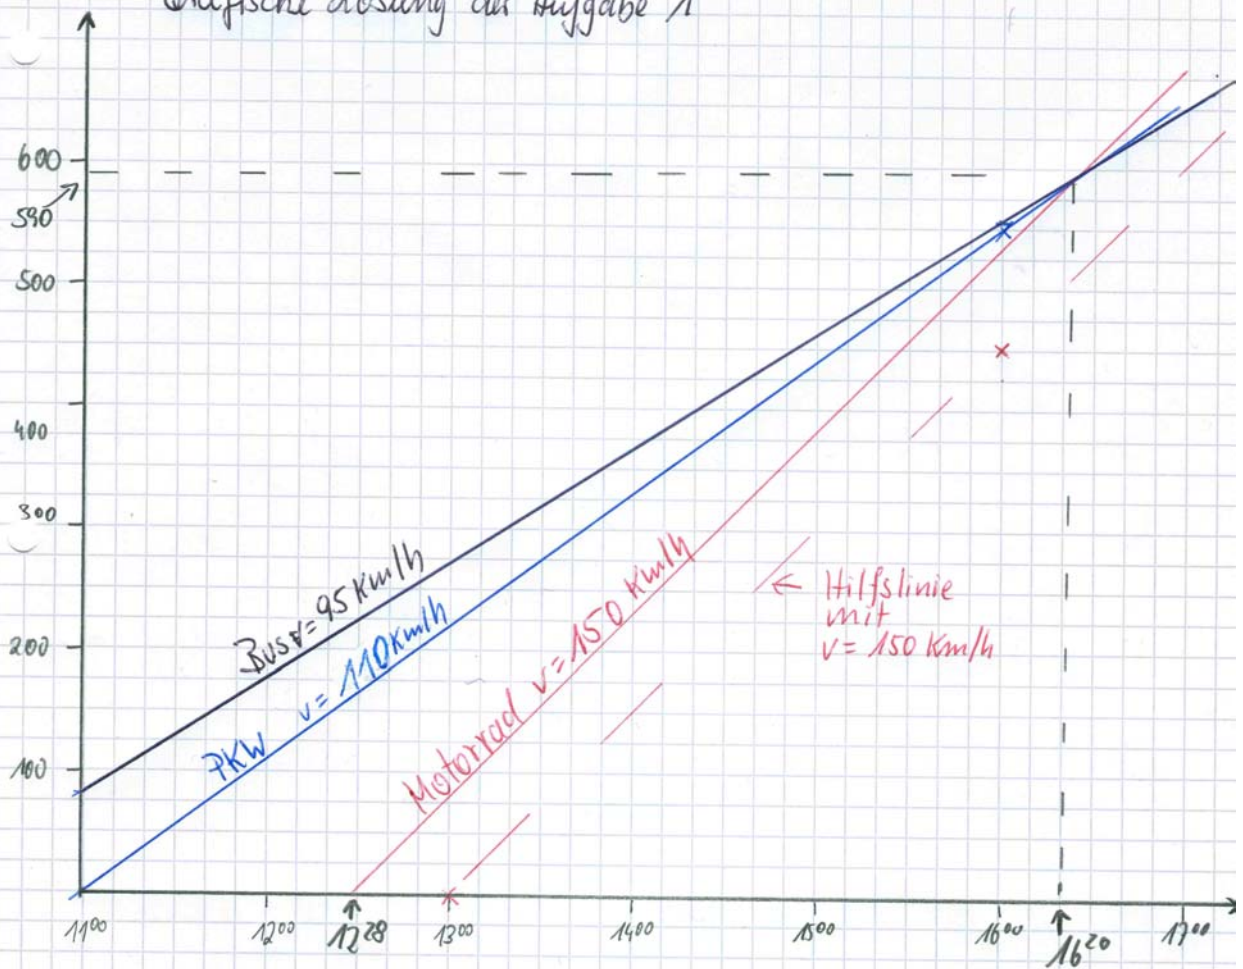 Grafische Lösung der Aufgabe 1
600
590
500
400
300
200
100
Bus v=95 Km/h
PKW v= 110 Km/h
Motorrad v=150 Km/h
← Hilfslinie
mit
v= 150 Km/h
11⁰⁰ 12⁰⁰ 12²⁸ 13⁰⁰ 14⁰⁰ 15⁰⁰ 16⁰⁰ 16²⁰ 17⁰⁰